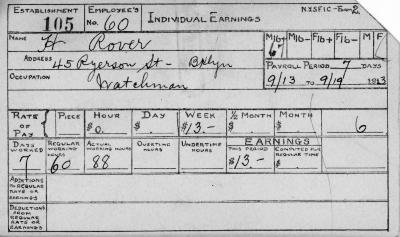 ESTABLISHMENT 105
EMPLOYEE'S No. 60
INDIVIDUAL EARNINGS
N.Y.S.F.I.C.
NAME H Rover
M16+ M16- F16+ F16- M F
ADDRESS 45 Ryerson St - Bklyn
PAYROLL PERIOD 7 DAYS
OCCUPATION Watchman
9/13 TO 9/19 1913
RATE OF PAY PIECE HOUR $0. DAY $. WEEK $13.- ½ MONTH $. MONTH $. 6
DAYS WORKED 7
REGULAR WORKING HOURS 60
ACTUAL WORKING HOURS 88
OVERTIME HOURS
UNDERTIME HOURS
EARNINGS
THIS PERIOD $13.-
COMPUTED FOR REGULAR TIME $.
ADDITIONS TO REGULAR RATE OR EARNINGS
DEDUCTIONS FROM REGULAR RATE OR EARNINGS